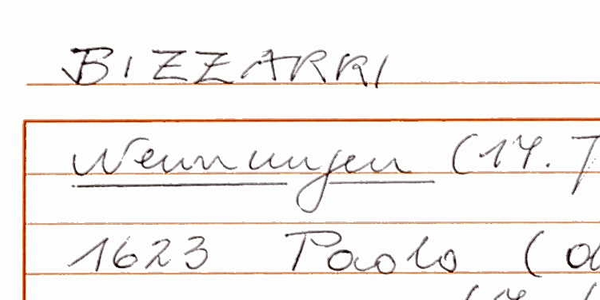 BIZZARRI
Nennungen (17. J
1623 Paolo (d